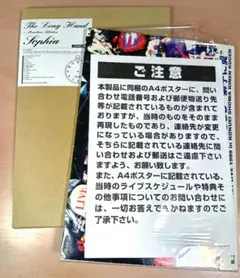 The Long Hand
Sophia
ご注意
本製品に同梱のA4ポスターに、問い
合わせ電話番号および郵便物送り先
等が記載されているものが含まれて
おりますが、当時のものをそのまま
再現したものであり、連絡先が変更
になっている場合がありますので、
そちらに記載されている連絡先に問
い合わせおよび郵送はご遠慮下さい
ますよう、お願い致します。
また、A4ポスターに記載されている、
当時のライブスケジュールや特典そ
の他事項についてのお問い合わせに
は、一切お答えできかねますのでご
了承下さい。
LIVE